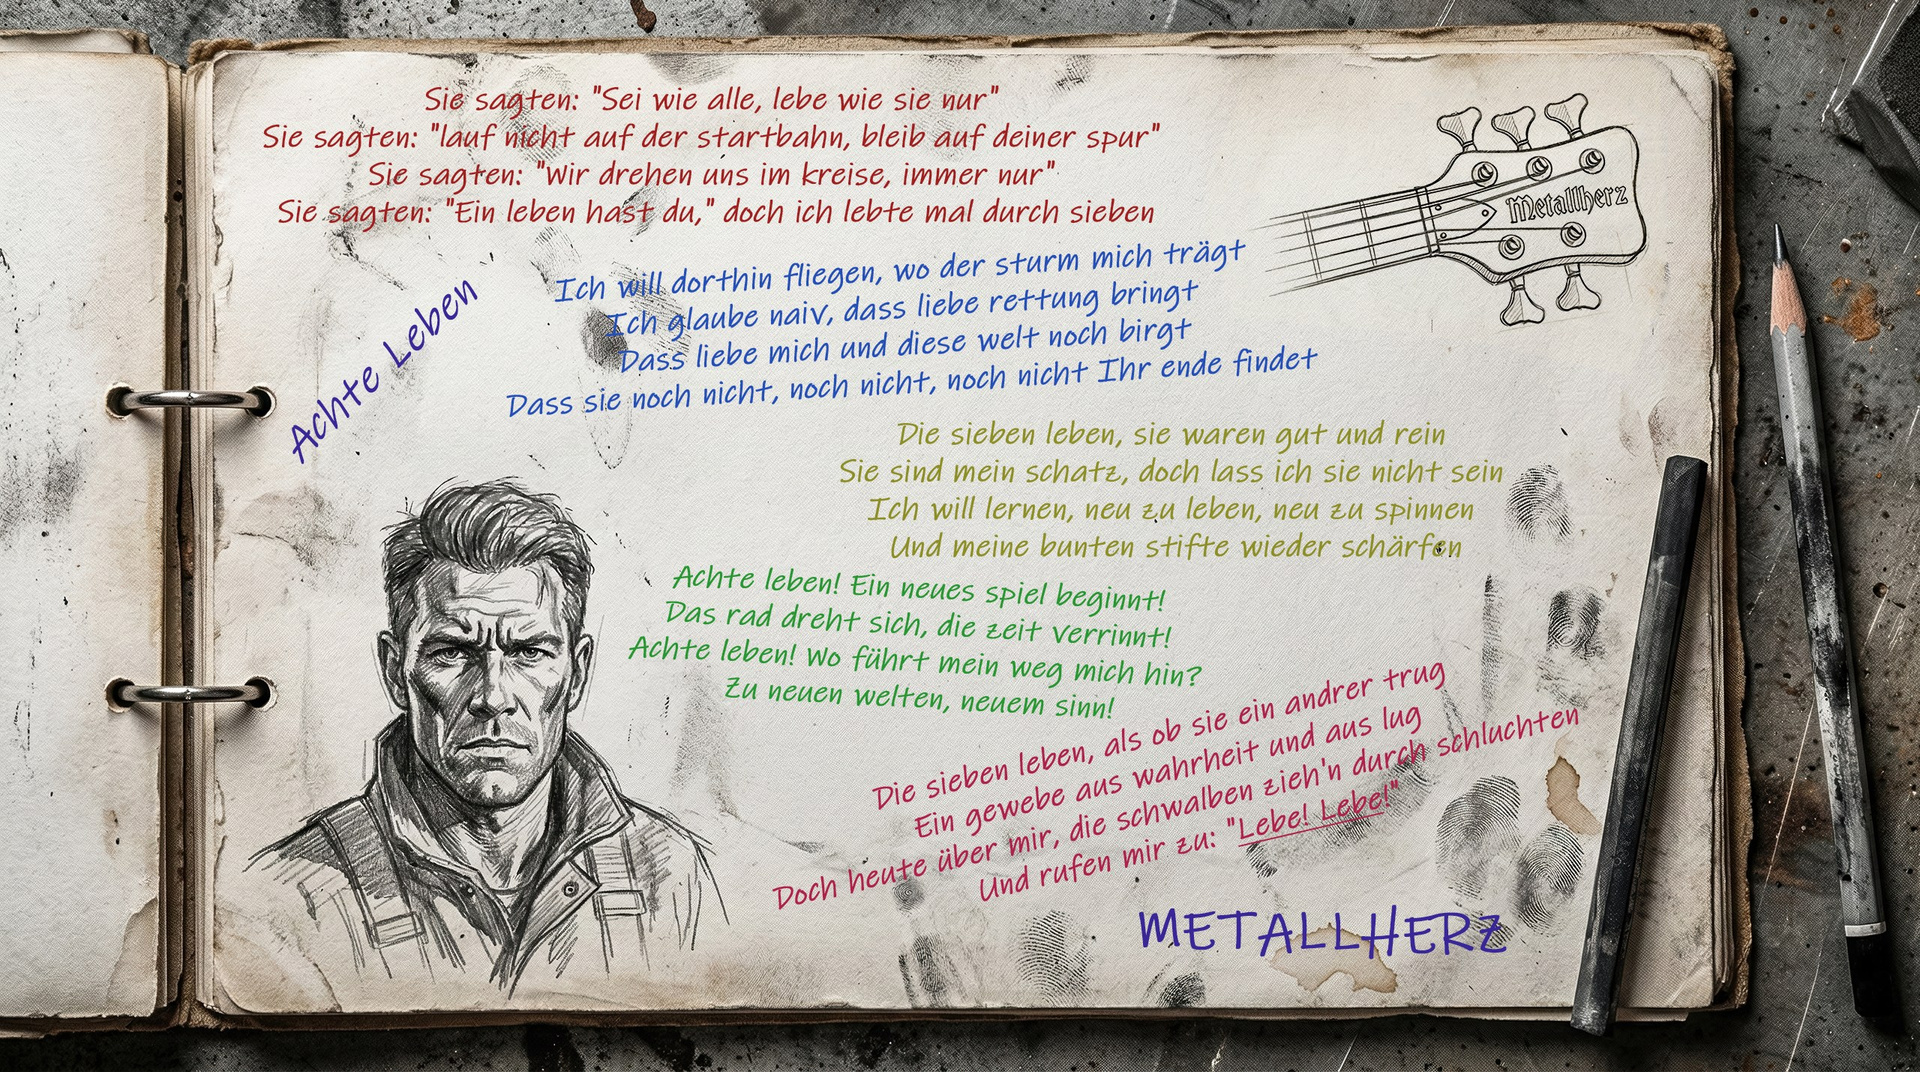 Sie sagten: "Sei wie alle, lebe wie sie nur"
Sie sagten: "lauf nicht auf der startbahn, bleib auf deiner spur"
Sie sagten: "Wir drehen uns im kreise, immer nur"
Sie sagten: "Ein leben hast du," doch ich lebte mal durch sieben
Metallherz
Achte Leben
Ich will dorthin fliegen, wo der sturm mich trägt
Ich glaube naiv, dass liebe rettung bringt
Dass liebe mich und diese welt noch birgt
Dass sie noch nicht, noch nicht, noch nicht Ihr ende findet
Die sieben leben, sie waren gut und rein
Sie sind mein schatz, doch lass ich sie nicht sein
Ich will lernen, neu zu leben, neu zu spinnen
Und meine bunten stifte wieder schärfen
Achte leben! Ein neues spiel beginnt!
Das rad dreht sich, die zeit verrinnt!
Achte leben! Wo führt mein weg mich hin?
Zu neuen welten, neuem sinn!
Die sieben leben, als ob sie ein andrer trug
Ein gewebe aus wahrheit und aus lug
Doch heute über mir, die schwalben zieh'n durch schluchten
Und rufen mir zu: "Lebe! Lebe!"
METALLHERZ